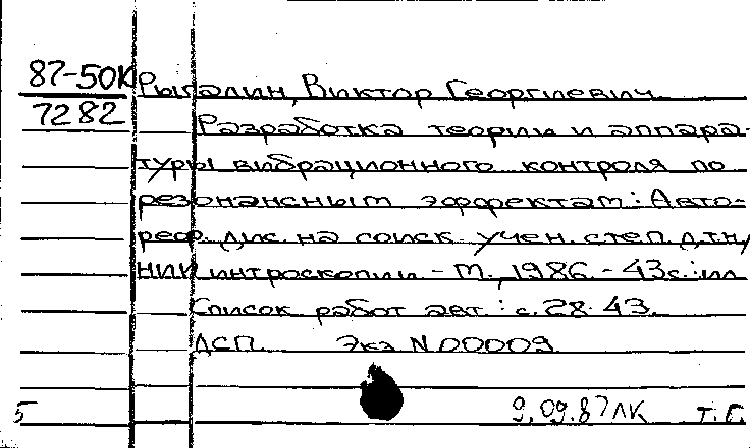 87-50К
7282
Рыгалин, Виктор Георгиевич
Разработка теории и аппара-
туры вибрационного контроля по
резонансным эффектам: Авто-
реф. дис. на соиск. учен. степ. д.т.н/
НИИ интроскопии - М., 1986. - 43с.: ил
Список работ авт.: с. 28-43.
ДСП. Экз N 00009
5 9.09.87 ЛК Т. Г.